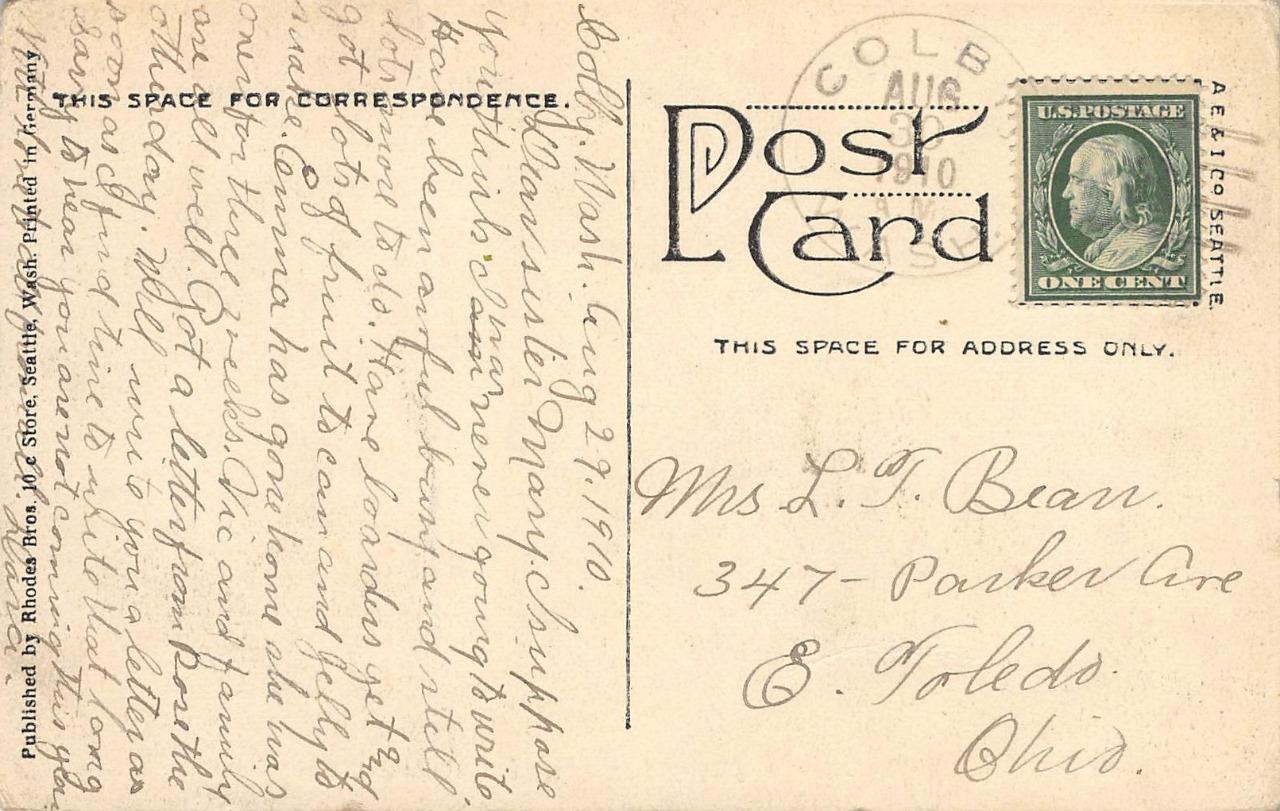 THIS SPACE FOR CORRESPONDENCE.
Colby. Wash. Aug 29. 1910.
Dear sister Mary. I suppose
you think I was never going to write
Have been awful busy and still
lots more to do. Have boarders yet &
got lots of fruit to can and Jelly to
make. Emma has gone home she was
over for three weeks. Vic and family
are all well. Got a letter from Rose the
other day. Will write you a letter as
soon as I find time to write that long
Sorry to hear you are not coming this year
Published by Rhodes Bros. 10c Store, Seattle, Wash. Printed in Germany
Post
Card
COLBY
AUG
30
1910
A M
WASH.
U.S. POSTAGE
ONE CENT
A E & I CO. SEATTLE.
THIS SPACE FOR ADDRESS ONLY.
Mrs L. T. Bean.
347 - Parker Ave
E. Toledo.
Ohio.